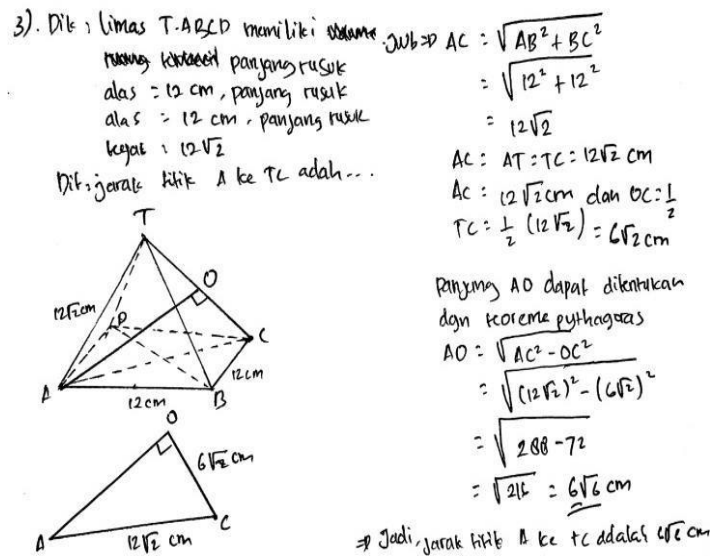 3). Dik : limas T.ABCD memiliki
panjang rusuk
alas = 12 cm, panjang rusuk
alas = 12 cm, panjang rusuk
tegak : 12√2
Dit : jarak titik A ke TC adah...
T
O
12√2 cm
D
C
12 cm
A
12 cm
B
O
6√2 cm
A
12√2 cm
C
Jwb => AC = √AB² + BC²
= √12² + 12²
= 12√2
AC = AT = TC = 12√2 cm
AC = 12√2 cm dan OC = 1/2
TC = 1/2 (12√2) = 6√2 cm
panjang AO dapat ditentukan
dgn teorema pythagoras
AO = √AC² - OC²
= √(12√2)² - (6√2)²
= √288 - 72
= √216 = 6√6 cm
=> Jadi, jarak titik A ke TC adalah 6√6 cm